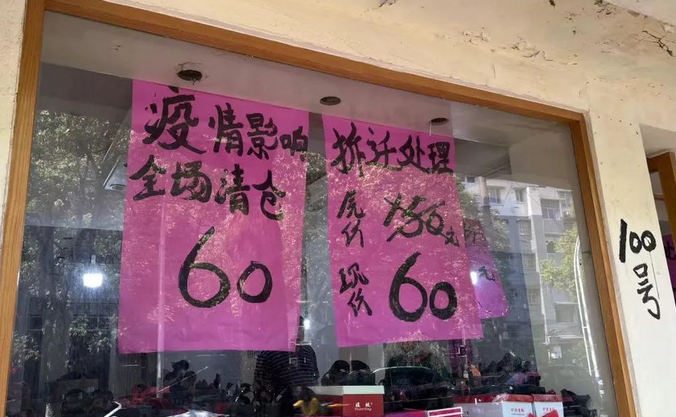 疫情影响
全场清仓
60
拆迁处理
原价 150元
现价 60
元
100号